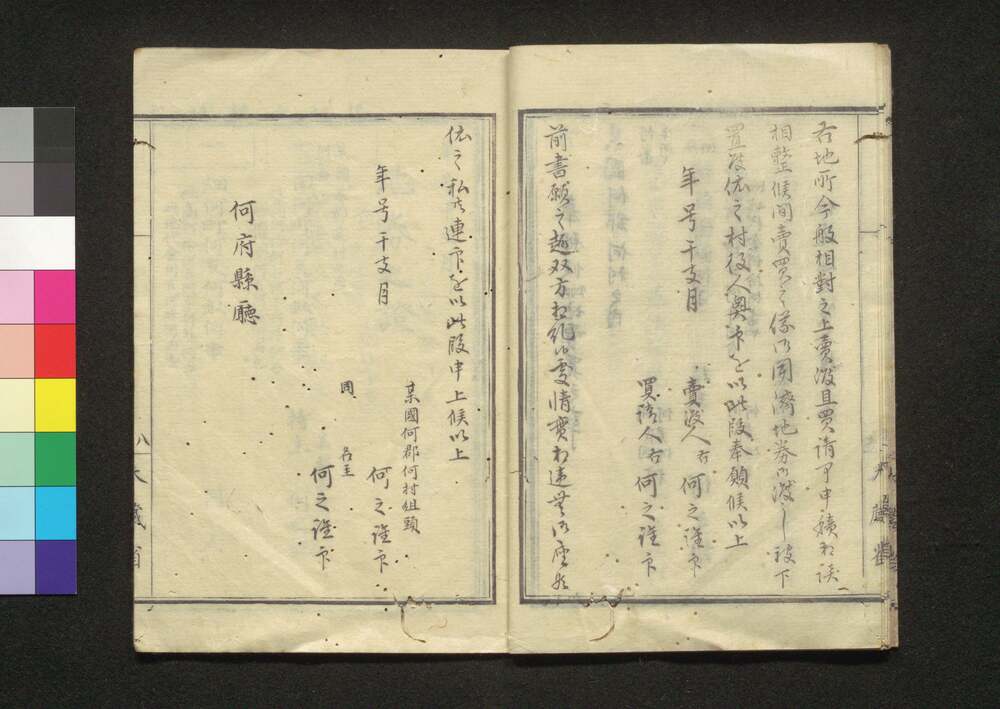 右地所今般相對之上賣渡且買請可申積相談
相整候間賣買之儀御聞濟地券御渡し被下
置度依之村役人奥印を以此段奉願候以上
年号干支月
賣渡人右
何之誰印
買請人右
何之誰印
前書願之趣双方相糺候處情實相違無御座候
依之私共連印を以此段申上候以上
年号干支月
某國何郡何村組頭
何之誰印
同
名主
何之誰印
何府縣廳
八
大藏省